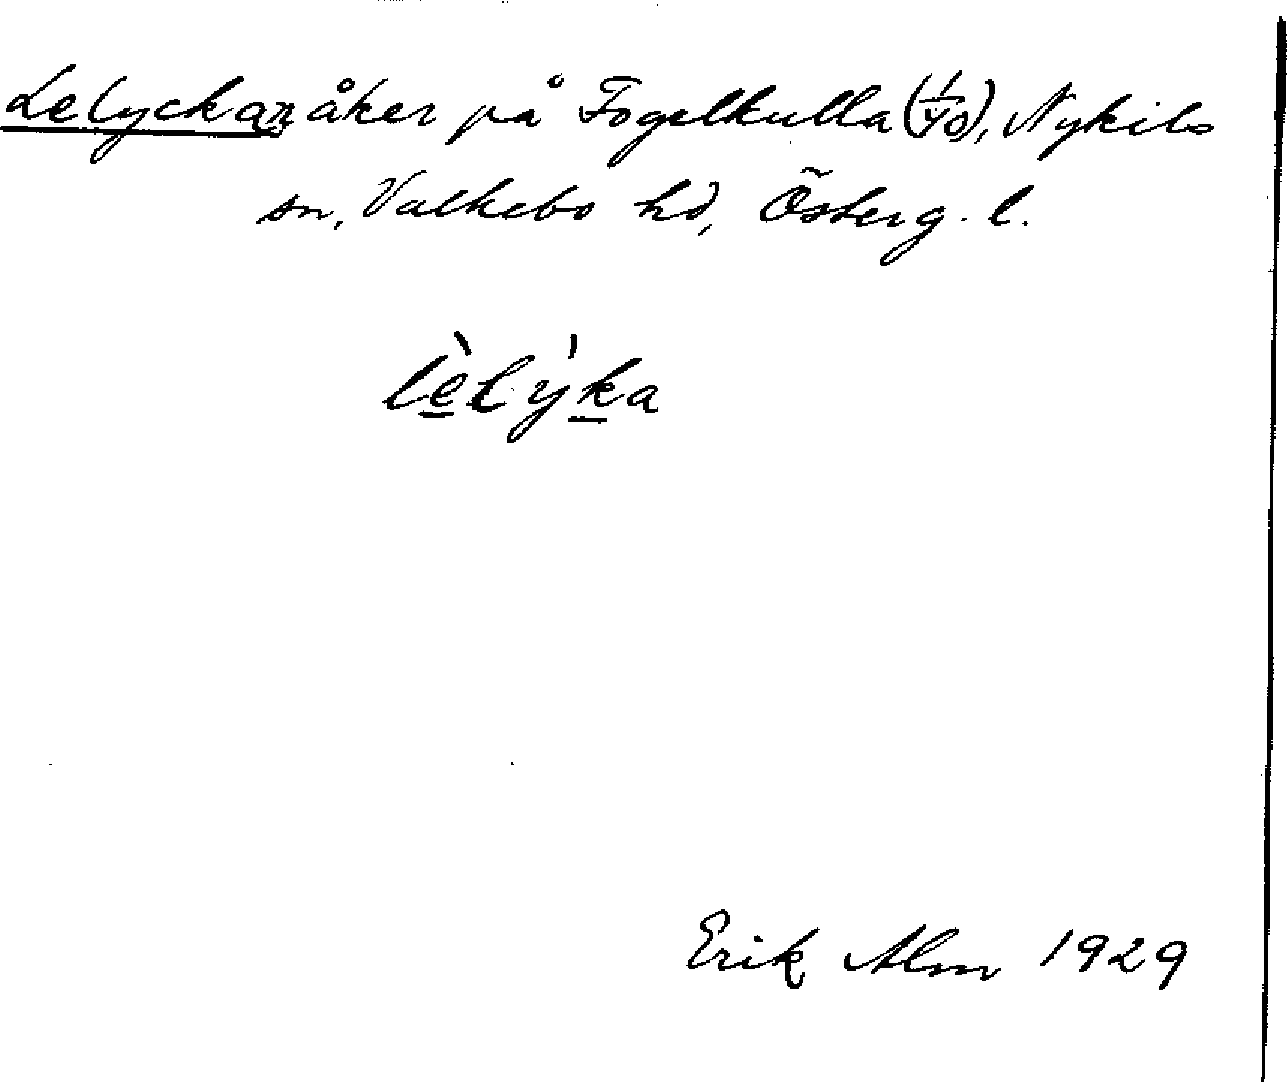 Lelyckan åker på Fogelkulla (1/40), Nykils
sn, Valkebo hd, Österg. l.
lèlýka
Erik Alm 1929